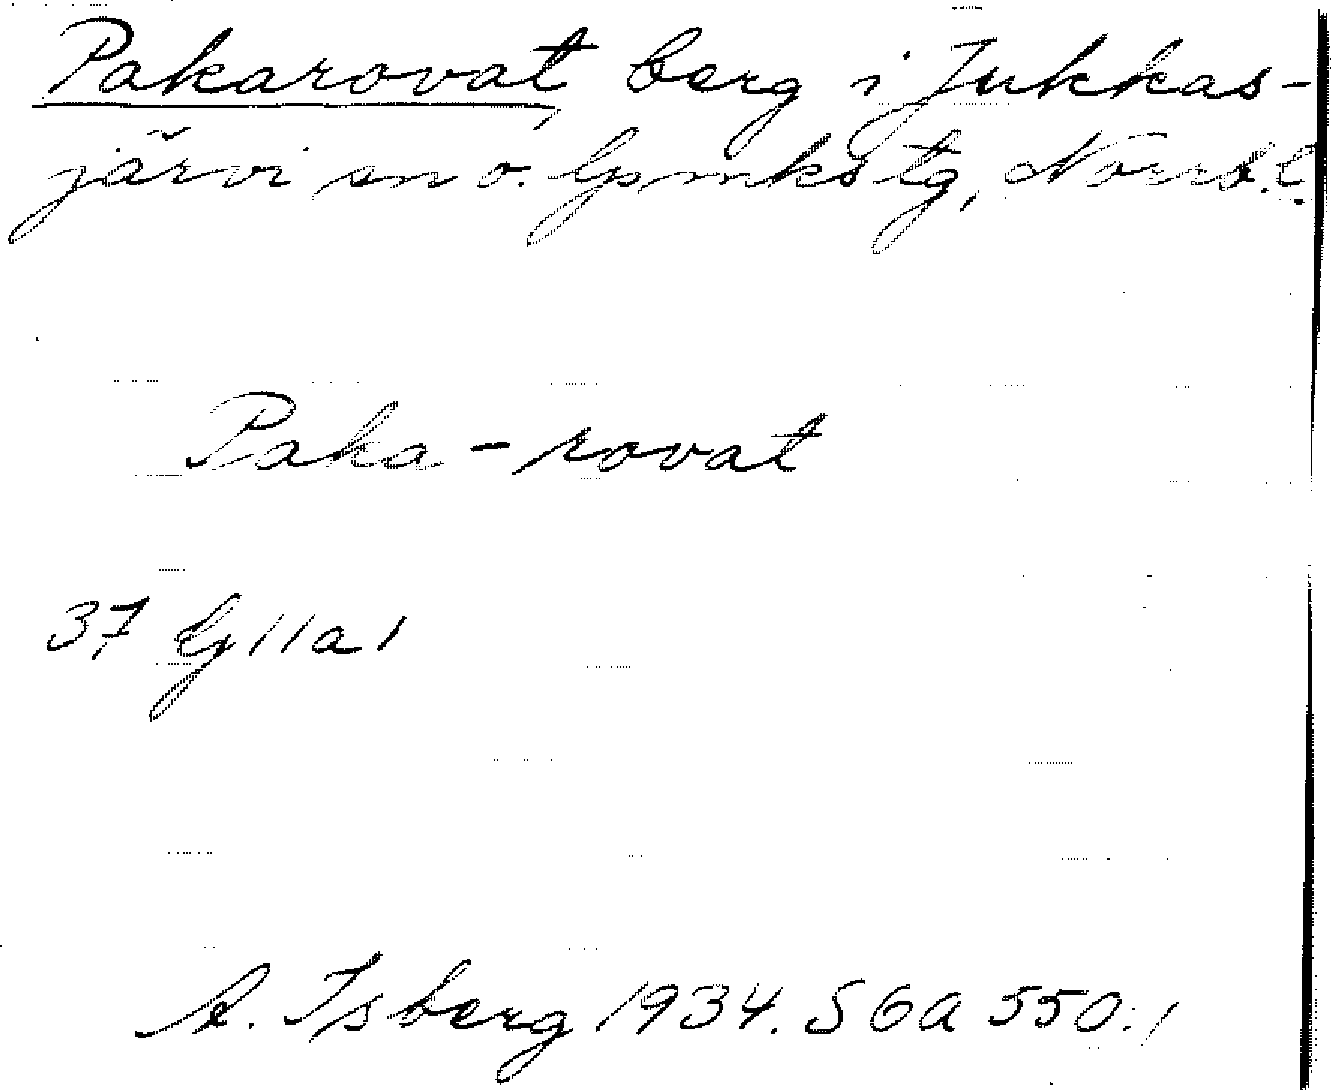 Pakarovat, berg i Jukkas-
järvi sn o. lpmkstg, Norrb. l.
Paka-rovat
37 lj 11 a 1
A. Isberg 1934. SGA 550:1